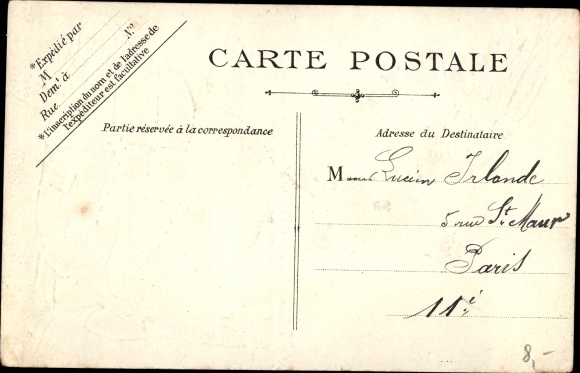 *Expédié par
M N°
Dem.t à
Rue
*L'inscription du nom et de l'adresse de
l'expéditeur est facultative
CARTE POSTALE
Partie réservée à la correspondance
Adresse du Destinataire
Mme Lucien Irlande
5 rue St. Maur
Paris
11è
8,-